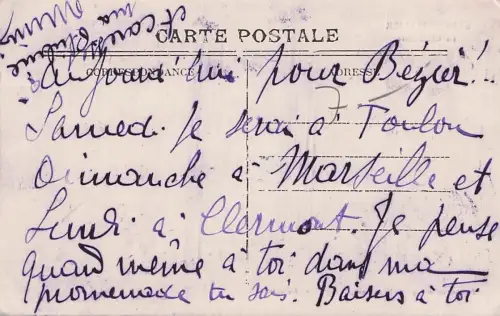 CARTE POSTALE
CORRESPONDANCE ADRESSE
Aujourd'hui pour Bézier!..
Samedi. Je serai à Toulon
Dimanche à Marseille et
Lundi à Clermont. Je pense
quand même à toi dans ma
promenade tu sais. Baisers à toi
et caresses
ma